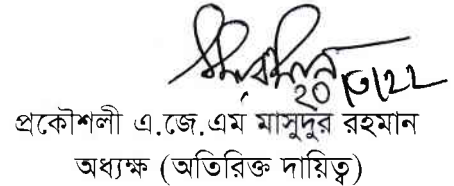 ২০/৩/২২
প্রকৌশলী এ.জে.এম মাসুদুর রহমান
অধ্যক্ষ (অতিরিক্ত দায়িত্ব)